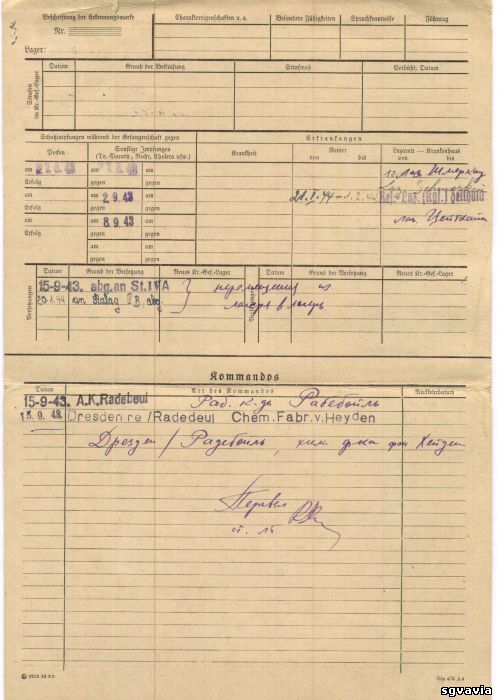 Beschriftung der Erkennungsmarke
Nr.
Lager:
Charaktereigenschaften u. a.
Besondere Fähigkeiten
Sprachkenntnisse
Führung
Strafen im Kr.-Gef.-Lager
Datum
Grund der Bestrafung
Strafmaß
Verbüßt, Datum
Schutzimpfungen während der Gefangenschaft gegen
Erkrankungen
Pocken
Sonstige Impfungen
(Ty.-Paraty., Ruhr, Cholera usw.)
Krankheit
Revier
von bis
Lazarett — Krankenhaus
von bis
am am am
Erfolg gegen gegen
am am 2 9.43 am
Erfolg gegen gegen
am am 8 9.43 am
Erfolg gegen gegen
am am
gegen gegen
Res. Laz. (Kgf.) Zeithain
лаз. Цейтхайн
Versetzungen
Datum
Grund der Versetzung
Neues Kr.-Gef.-Lager
Datum
Grund der Versetzung
Neues Kr.-Gef.-Lager
15-9-43. abg. an St. IV A
20.1.44 an Stalag IV B, abg.
перемещения из
лагеря в лагерь
Kommandos
Datum
Art des Kommandos
Rückkehrdatum
15-9-43. A.K. Radebeul
Раб. к-да Радебойль
15. 9. 43 Dresden re/Radedeul Chem. Fabr. v. Heyden
Дрезден / Радебойль, хим. ф-ка фон Хейден
Перевел
ст. л-т
sgvavia